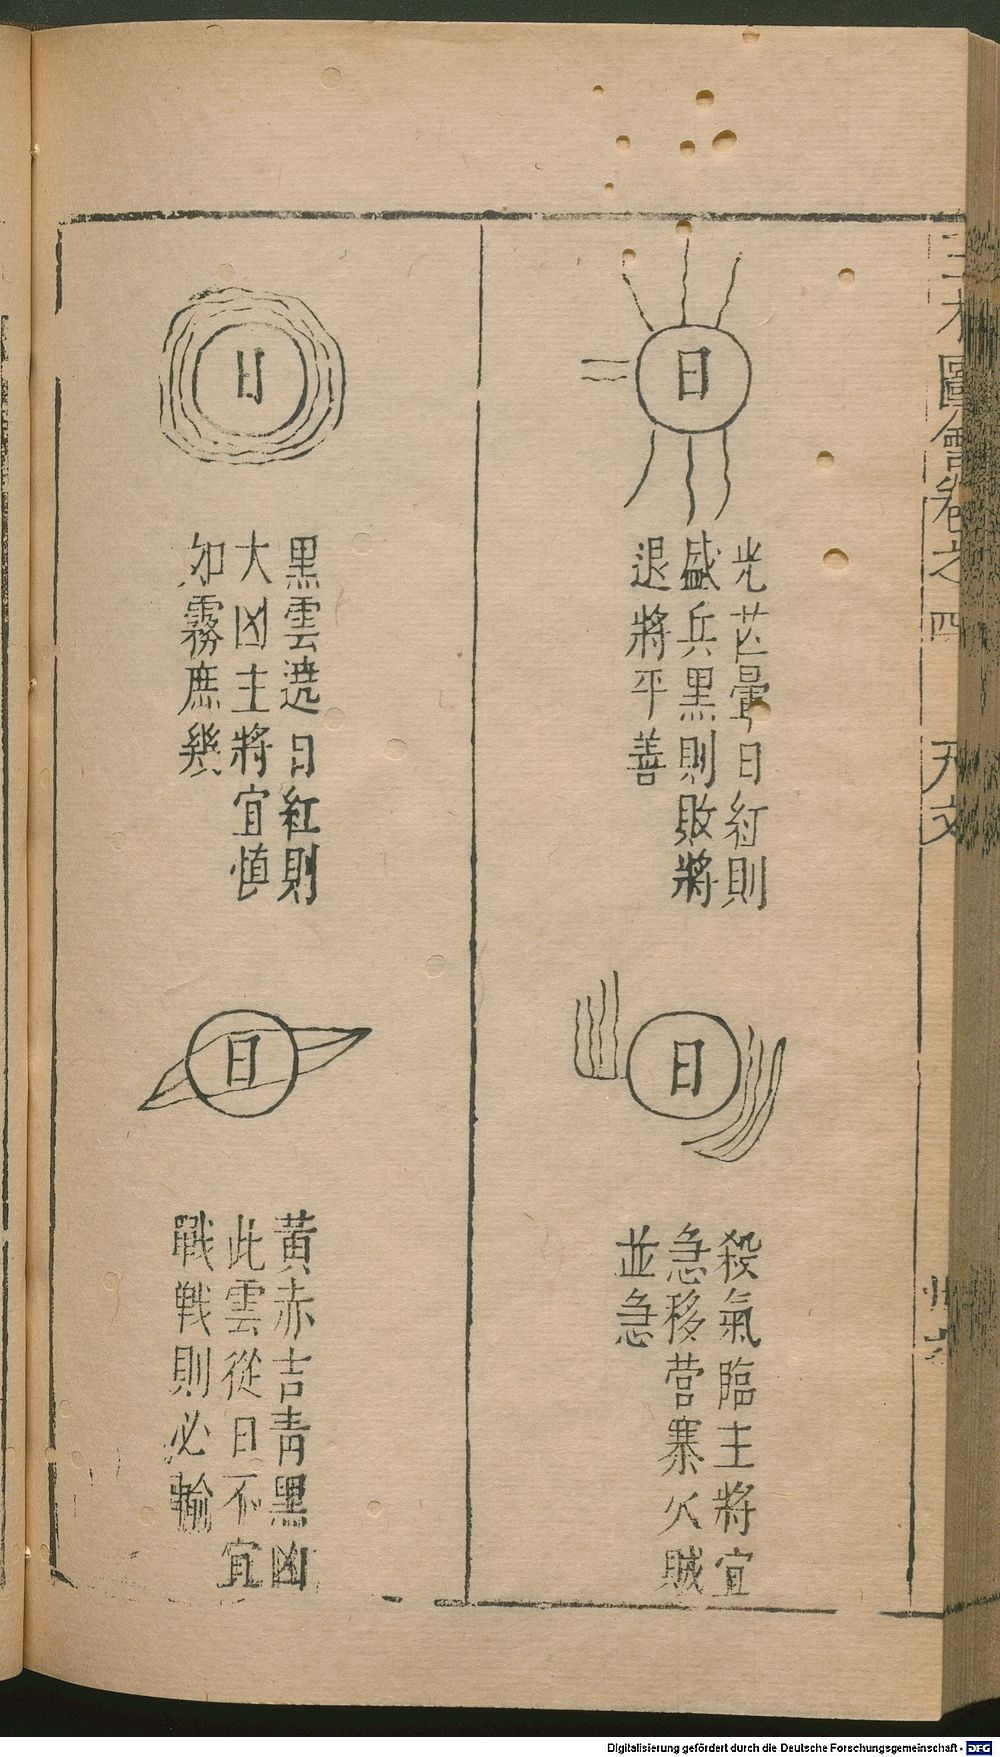 三才圖會卷之四
天文
日
光芒暈日紅則
盛兵黑則敗將
退將平善
日
殺氣臨主將宜
急移營寨火賊
並急
日
黑雲遶日紅則
大凶主將宜慎
如霧庶幾
日
黃赤吉青黑凶
此雲從日不宜
戰戰則必輸
Digitalisierung gefördert durch die Deutsche Forschungsgemeinschaft - DFG